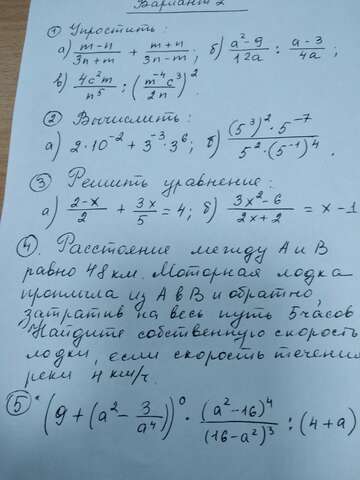 Вариант 2
① Упростить:
а) (m-n)/(3n+m) + (m+n)/(3n-m); б) (a²-9)/(12a) : (a-3)/(4a);
в) (4c²m)/(n⁵) : ((m⁻⁴c³)/(2n))²
② Вычислить:
а) 2·10⁻² + 3⁻³·3⁶; б) ((5³)²·5⁻⁷)/(5²·(5⁻¹)⁴).
③ Решить уравнение:
а) (2-x)/2 + (3x)/5 = 4; б) (3x²-6)/(2x+2) = x-1
④. Расстояние между А и В
равно 48 км. Моторная лодка
проплыла из А в В и обратно,
затратив на весь путь 5 часов
Найдите собственную скорость
лодки, если скорость течения
реки 4 км/ч.
⑤* (9+(a²-3/a⁴))⁰ · (a²-16)⁴/(16-a²)³ : (4+a)